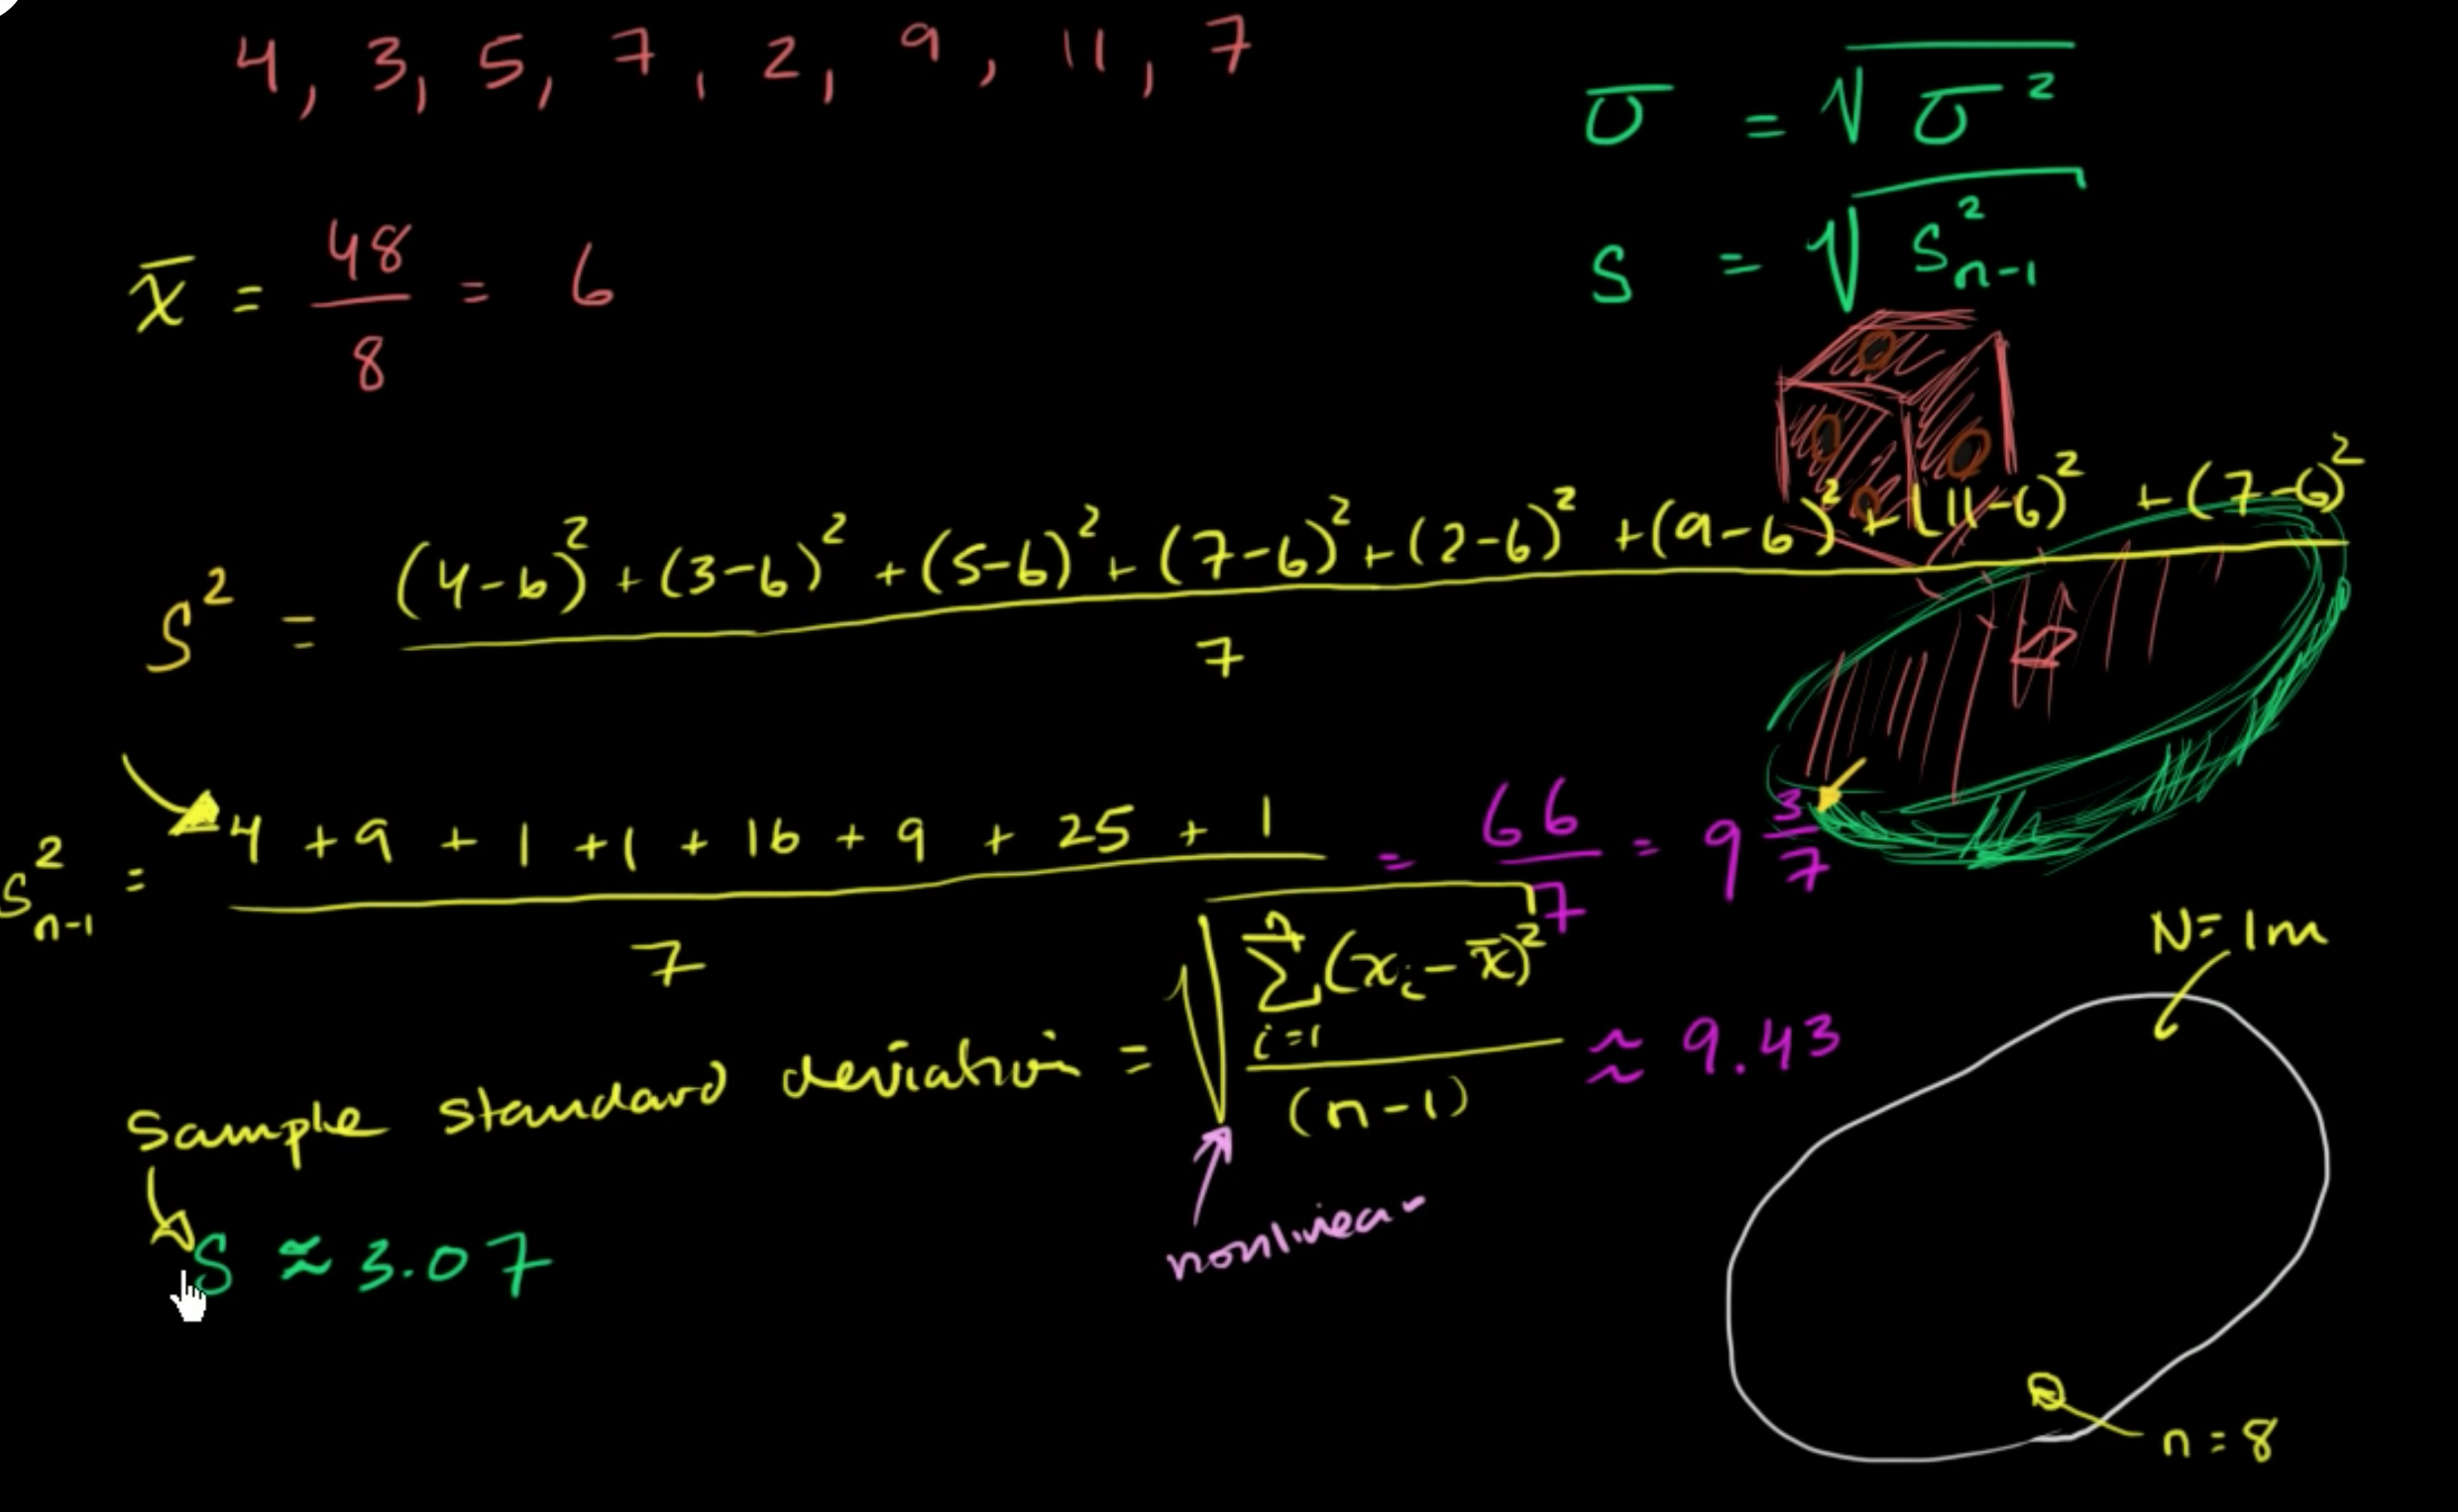 4, 3, 5, 7, 2, 9, 11, 7
σ = √σ²
x̄ = 48/8 = 6
s = √s²ₙ₋₁
S² = ((4-6)² + (3-6)² + (5-6)² + (7-6)² + (2-6)² + (9-6)² + (11-6)² + (7-6)²)/7
s²ₙ₋₁ = (4 + 9 + 1 + 1 + 16 + 9 + 25 + 1)/7 = 66/7 = 9 3/7
≈ 9.43
Sample standard deviation = √(∑ⁿᵢ₌₁(xᵢ - x̄)²/(n-1))
nonlinear
S ≈ 3.07
N = 1m
n = 8